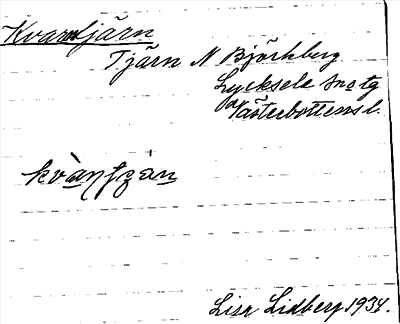 Kvarntjärn
Tjärn N Björkberg
Lycksele sn o tg
Västerbottens l.
kvàɳʃæ̀n
Lisa Lidberg 1934.